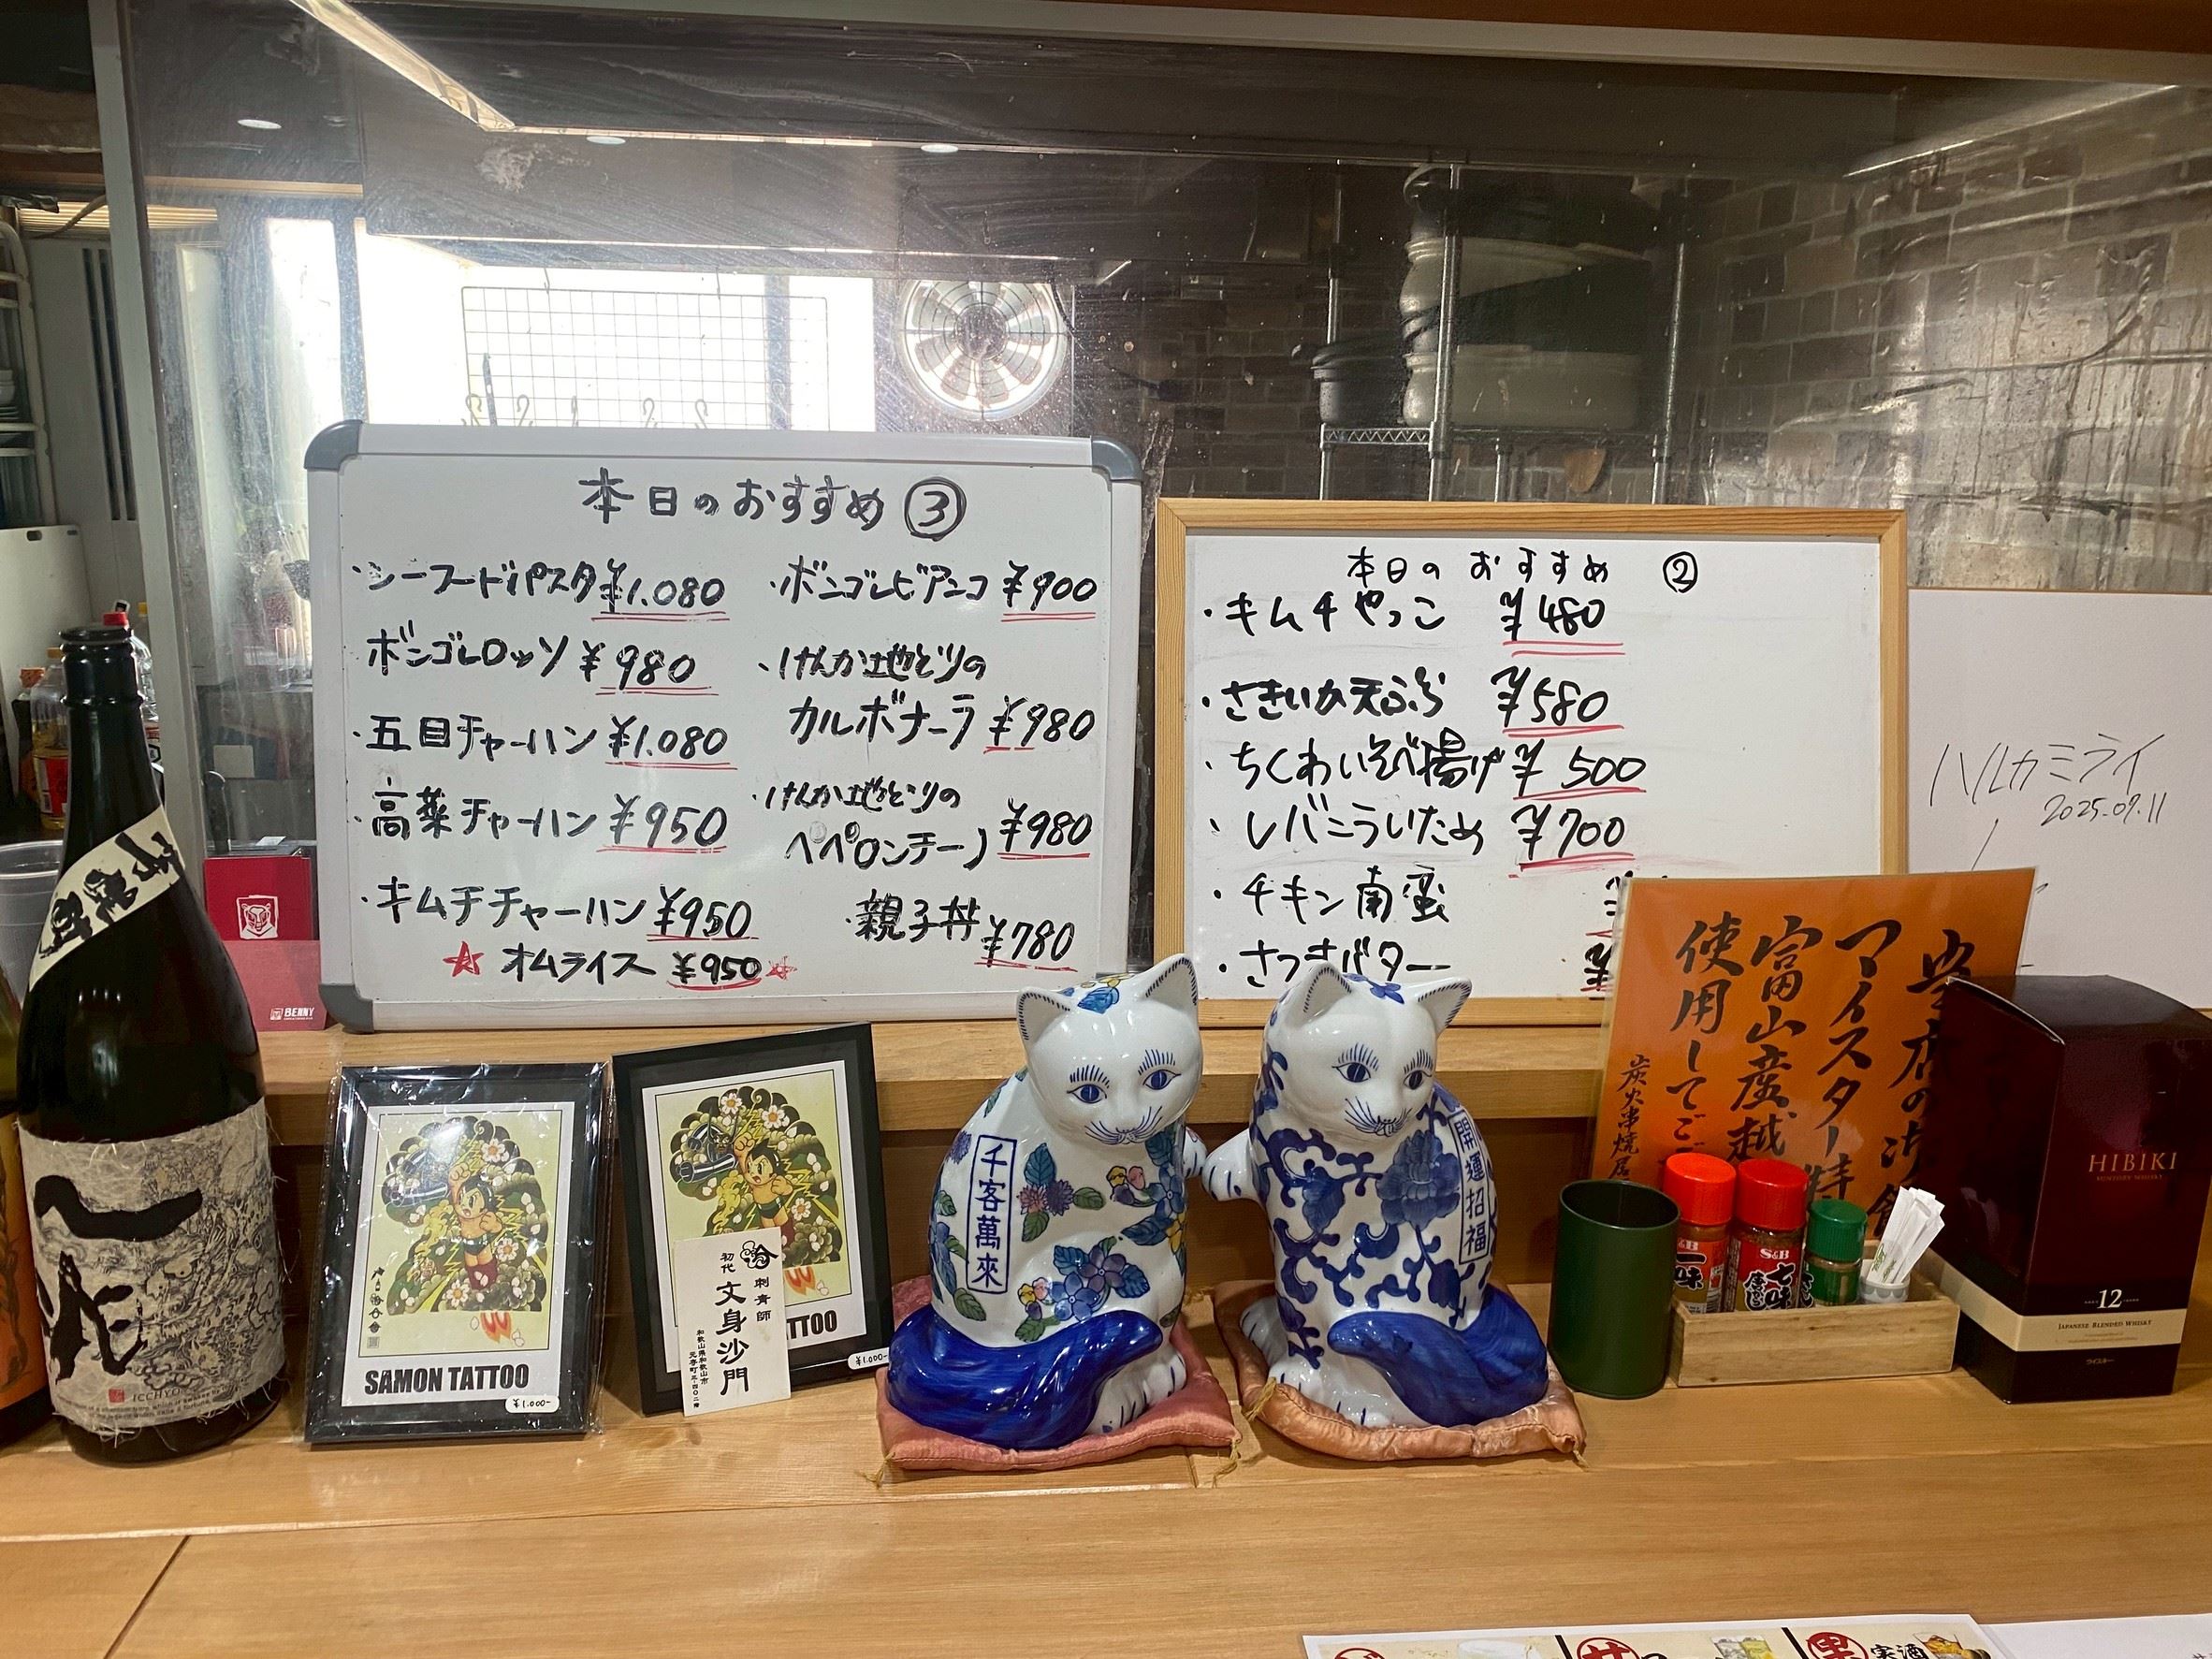 本日のおすすめ ③
・シーフードパスタ ¥1.080
ボンゴレロッソ ¥980
・五目チャーハン ¥1.080
・高菜チャーハン ¥950
・キムチチャーハン ¥950
☆ オムライス ¥950 ☆
・ボンゴレビアンコ ¥900
・けんか地どりの
カルボナーラ ¥980
・けんか地どりの
ペペロンチーノ ¥980
・親子丼 ¥780
本日のおすすめ ②
・キムチやっこ ¥480
・さきいか天ぷら ¥580
・ちくわいそべ揚げ ¥500
・レバニラいため ¥700
・チキン南蛮 ¥
・さつまバター
ハルカミライ
2025.09.11
当店の
マイスター特
富山産越
使用してご
炭火串焼居
BENNY
ICCHYO
SAMON TATTOO
¥1.000-
初代
刺青師
文身沙門
和歌山県和歌山市
TTOO
¥1.000-
千客萬來
開運招福
S&B
一味
S&B
七味
唐からし
HIBIKI
SUNTORY WHISKY
12
JAPANESE BLENDED WHISKY
ウイスキー
サ
果
実酒